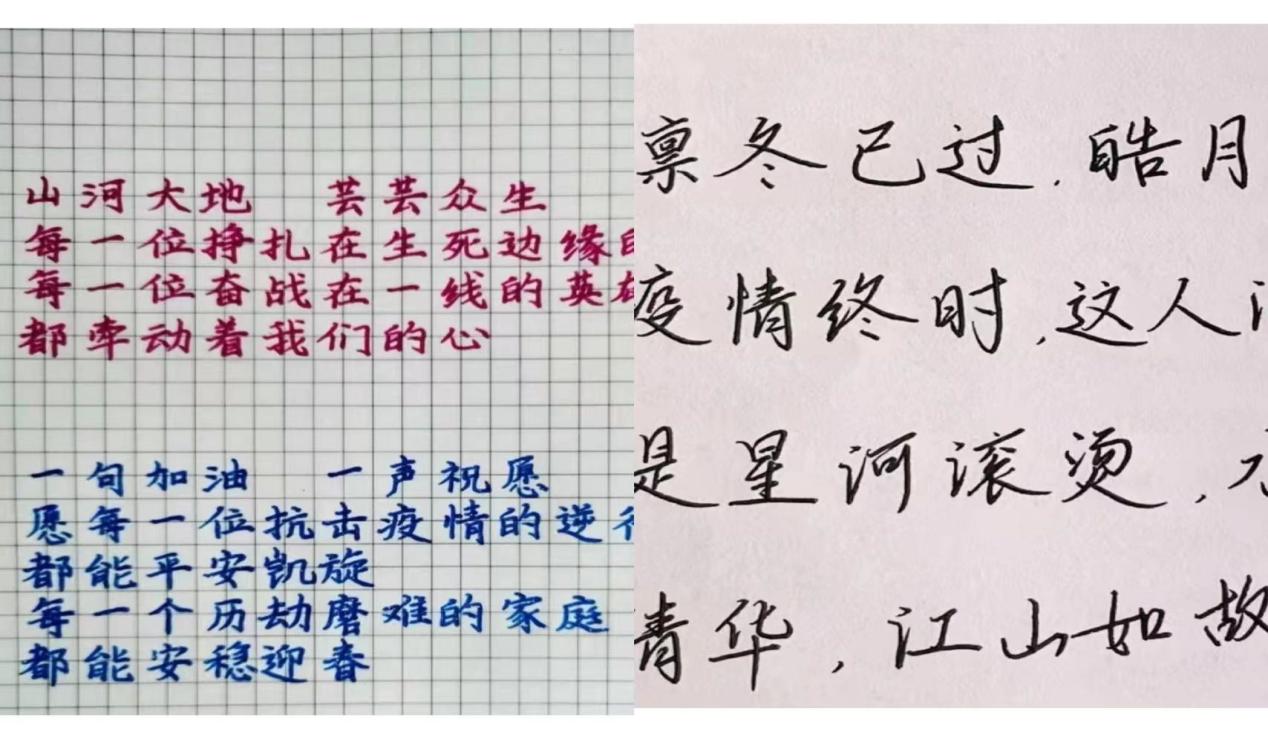 山河大地 芸芸众生
每一位挣扎在生死边缘
每一位奋战在一线的英
都牵动着我们的心
一句加油 一声祝愿
愿每一位抗击疫情的逆
都能平安凯旋
每一个历劫磨难的家庭
都能安稳迎春
凛冬已过.皓月
疫情终时,这人
是星河滚烫,
清华,江山如故